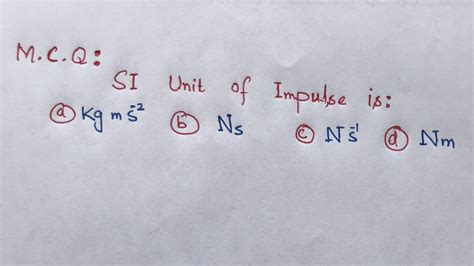 M.C.Q:
SI Unit of Impulse is:
ⓐ Kg m s⁻² ⓑ Ns ⓒ N s⁻¹ ⓓ Nm